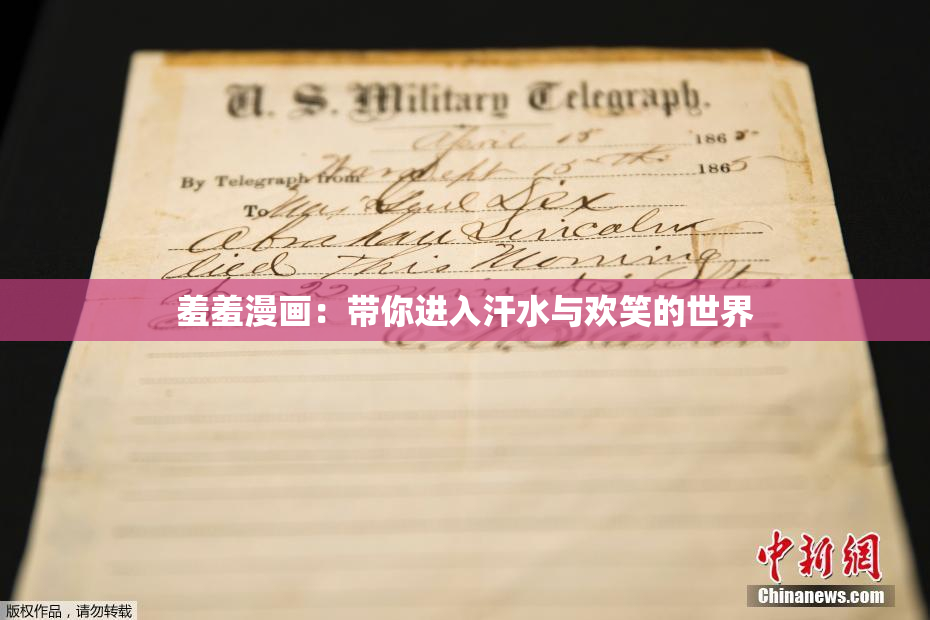 U. S. Military Telegraph.
April 15 1865
By Telegraph from War Dept 15th 1865
To Maj Genl Dix
Abraham Lincoln
died This Morning
at 22 minutes after
羞羞漫画：带你进入汗水与欢笑的世界
E. M. Stanton
中新网
Chinanews.com
版权作品，请勿转载